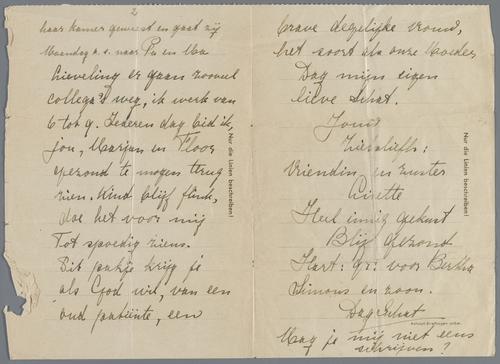 2
haar kamer geweest en gaat zij
Maandag a.s. naar Pa en Ma
Lieveling er gaan zooveel
collega's weg, ik werk van
6 tot 9. Iederen dag bid ik,
jou, Marjan en Floor
gezond te mogen terug
zien. Kind blijf flink,
doe het voor mij
Tot spoedig ziens.
Dit pakje krijg je
als God wil, van een
oud patiënte, een
Nur die Linien beschreiben!
brave degelijke vrouw,
het soort als onze Moeder
Dag mijn eigen
lieve Schat.
Jouw
Liefh:
vriendin en zuster
Heel innig gekust
Blijf gezond
Hart: gr: voor Bertha
Simons en zoon.
Dag Schat
Mag je mij niet eens
schrijven?
Nur die Linien beschreiben!